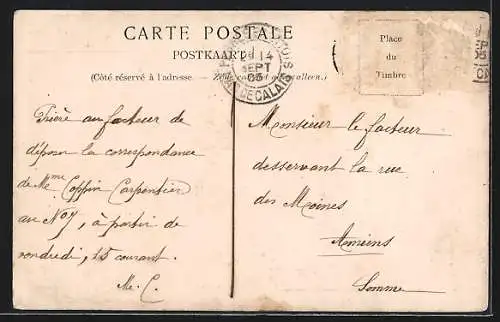 CARTE POSTALE
POSTKAART
(Côté réservé à l'adresse.
14
SEPT
PAS DE CALAIS
Place
du
Timbre
Prière au facteur de
déposer la correspondance
de Mme Coppin Carpentier
au No 7, à partir de
vendredi, 15 courant.
Me. C.
Monsieur le facteur
desservant la rue
des Moines
Amiens
Somme